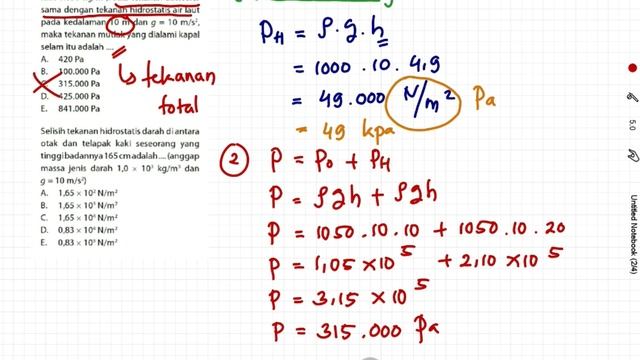 sama dengan tekanan hidrostatis air laut
pada kedalaman 10 m dan g = 10 m/s²,
maka tekanan mutlak yang dialami kapal
selam itu adalah ....
A. 420 Pa
B. 100.000 Pa
C. 315.000 Pa
D. 425.000 Pa
E. 841.000 Pa
↳ tekanan
total
Selisih tekanan hidrostatis darah di antara
otak dan telapak kaki seseorang yang
tinggi badannya 165 cm adalah.... (anggap
massa jenis darah 1,0 × 10³ kg/m³ dan
g = 10 m/s²)
A. 1,65 × 10² N/m²
B. 1,65 × 10³ N/m²
C. 1,65 × 10⁴ N/m²
D. 0,83 × 10⁴ N/m²
E. 0,83 × 10³ N/m²
P_H = ρ.g.h
= 1000 . 10 . 4,9
= 49.000 N/m² Pa
= 49 kpa
2 P = P₀ + P_H
P = ρgh + ρgh
P = 1050.10.10 + 1050.10.20
P = 1,05 × 10⁵ + 2,10 × 10⁵
P = 3,15 × 10⁵
P = 315.000 Pa
5.0
Untitled Notebook (2/4)